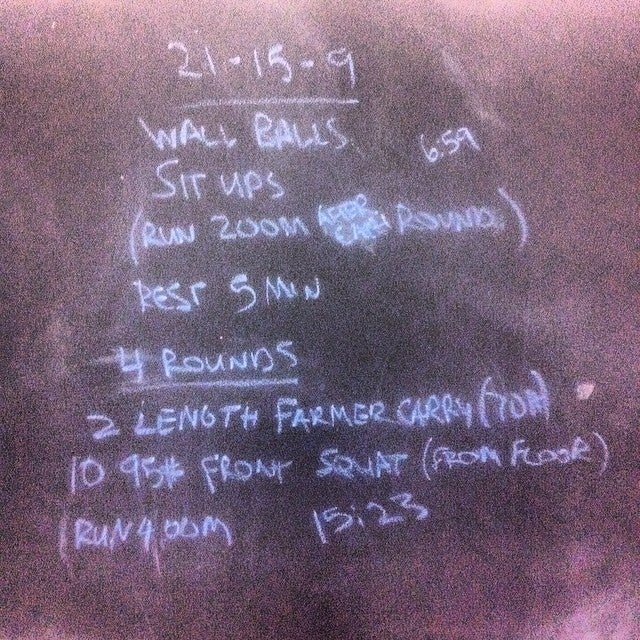 21-15-9
WALL BALLS
6:59
SIT UPS
(RUN 200M AFTER EACH ROUND)
REST 5 MIN
4 ROUNDS
2 LENGTH FARMER CARRY
10 95# FRONT SQUAT (FROM FLOOR)
RUN 400M 15:23